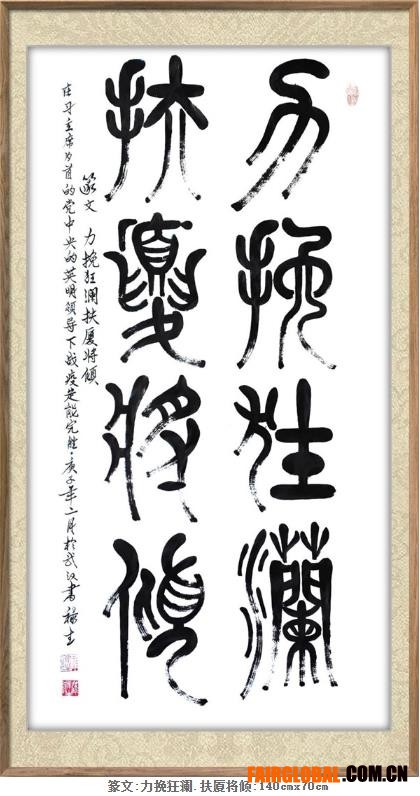 力挽狂瀾
扶廈將傾
篆文 力挽狂澜扶厦将倾
在习主席为首的党中央的英明领导下战疫是能完胜·庚子年二月於武汉书
FAIRGLOBAL.COM.CN
篆文:力挽狂澜.扶厦将倾:140cmx70cm